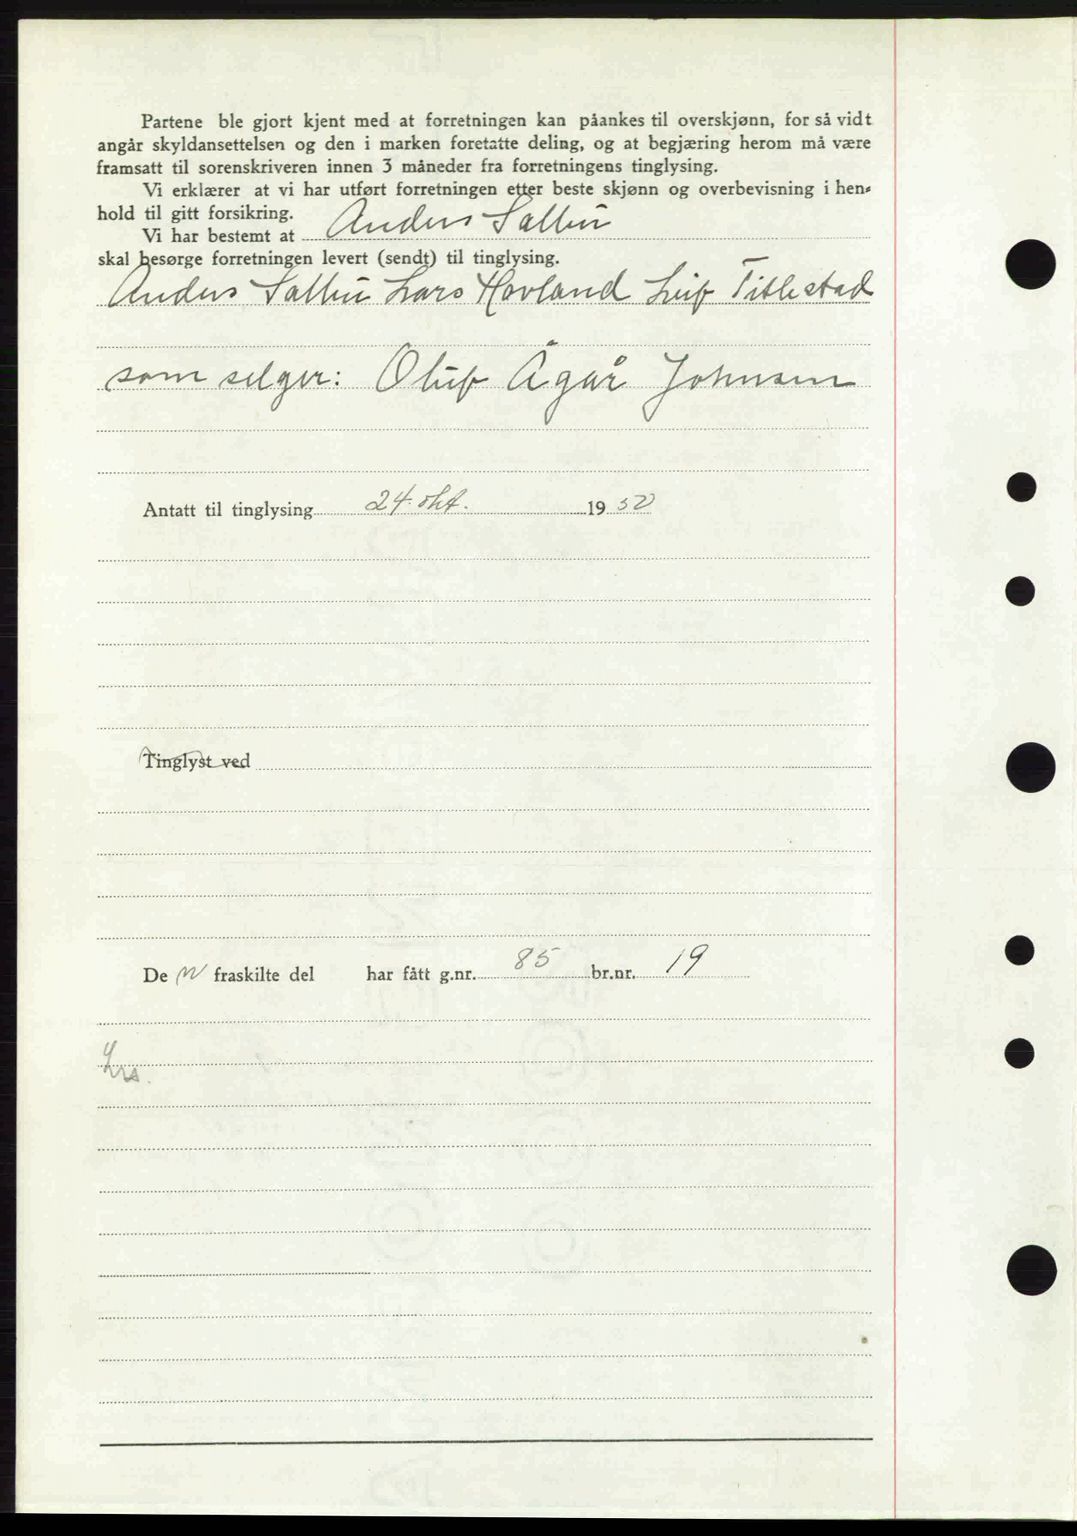 Partene ble gjort kjent med at forretningen kan påankes til overskjønn, for så vidt
angår skyldansettelsen og den i marken foretatte deling, og at begjæring herom må være
framsatt til sorenskriveren innen 3 måneder fra forretningens tinglysing.
Vi erklærer at vi har utført forretningen etter beste skjønn og overbevisning i hen-
hold til gitt forsikring.
Vi har bestemt at Anders Sælbu
skal besørge forretningen levert (sendt) til tinglysing.
Anders Lars Hovland Leif Titlestad
som selger: Oluf Ågår Johnsen
Antatt til tinglysing 24. okt. 1950
Tinglyst ved
De n fraskilte del har fått g.nr. 85 br.nr. 19